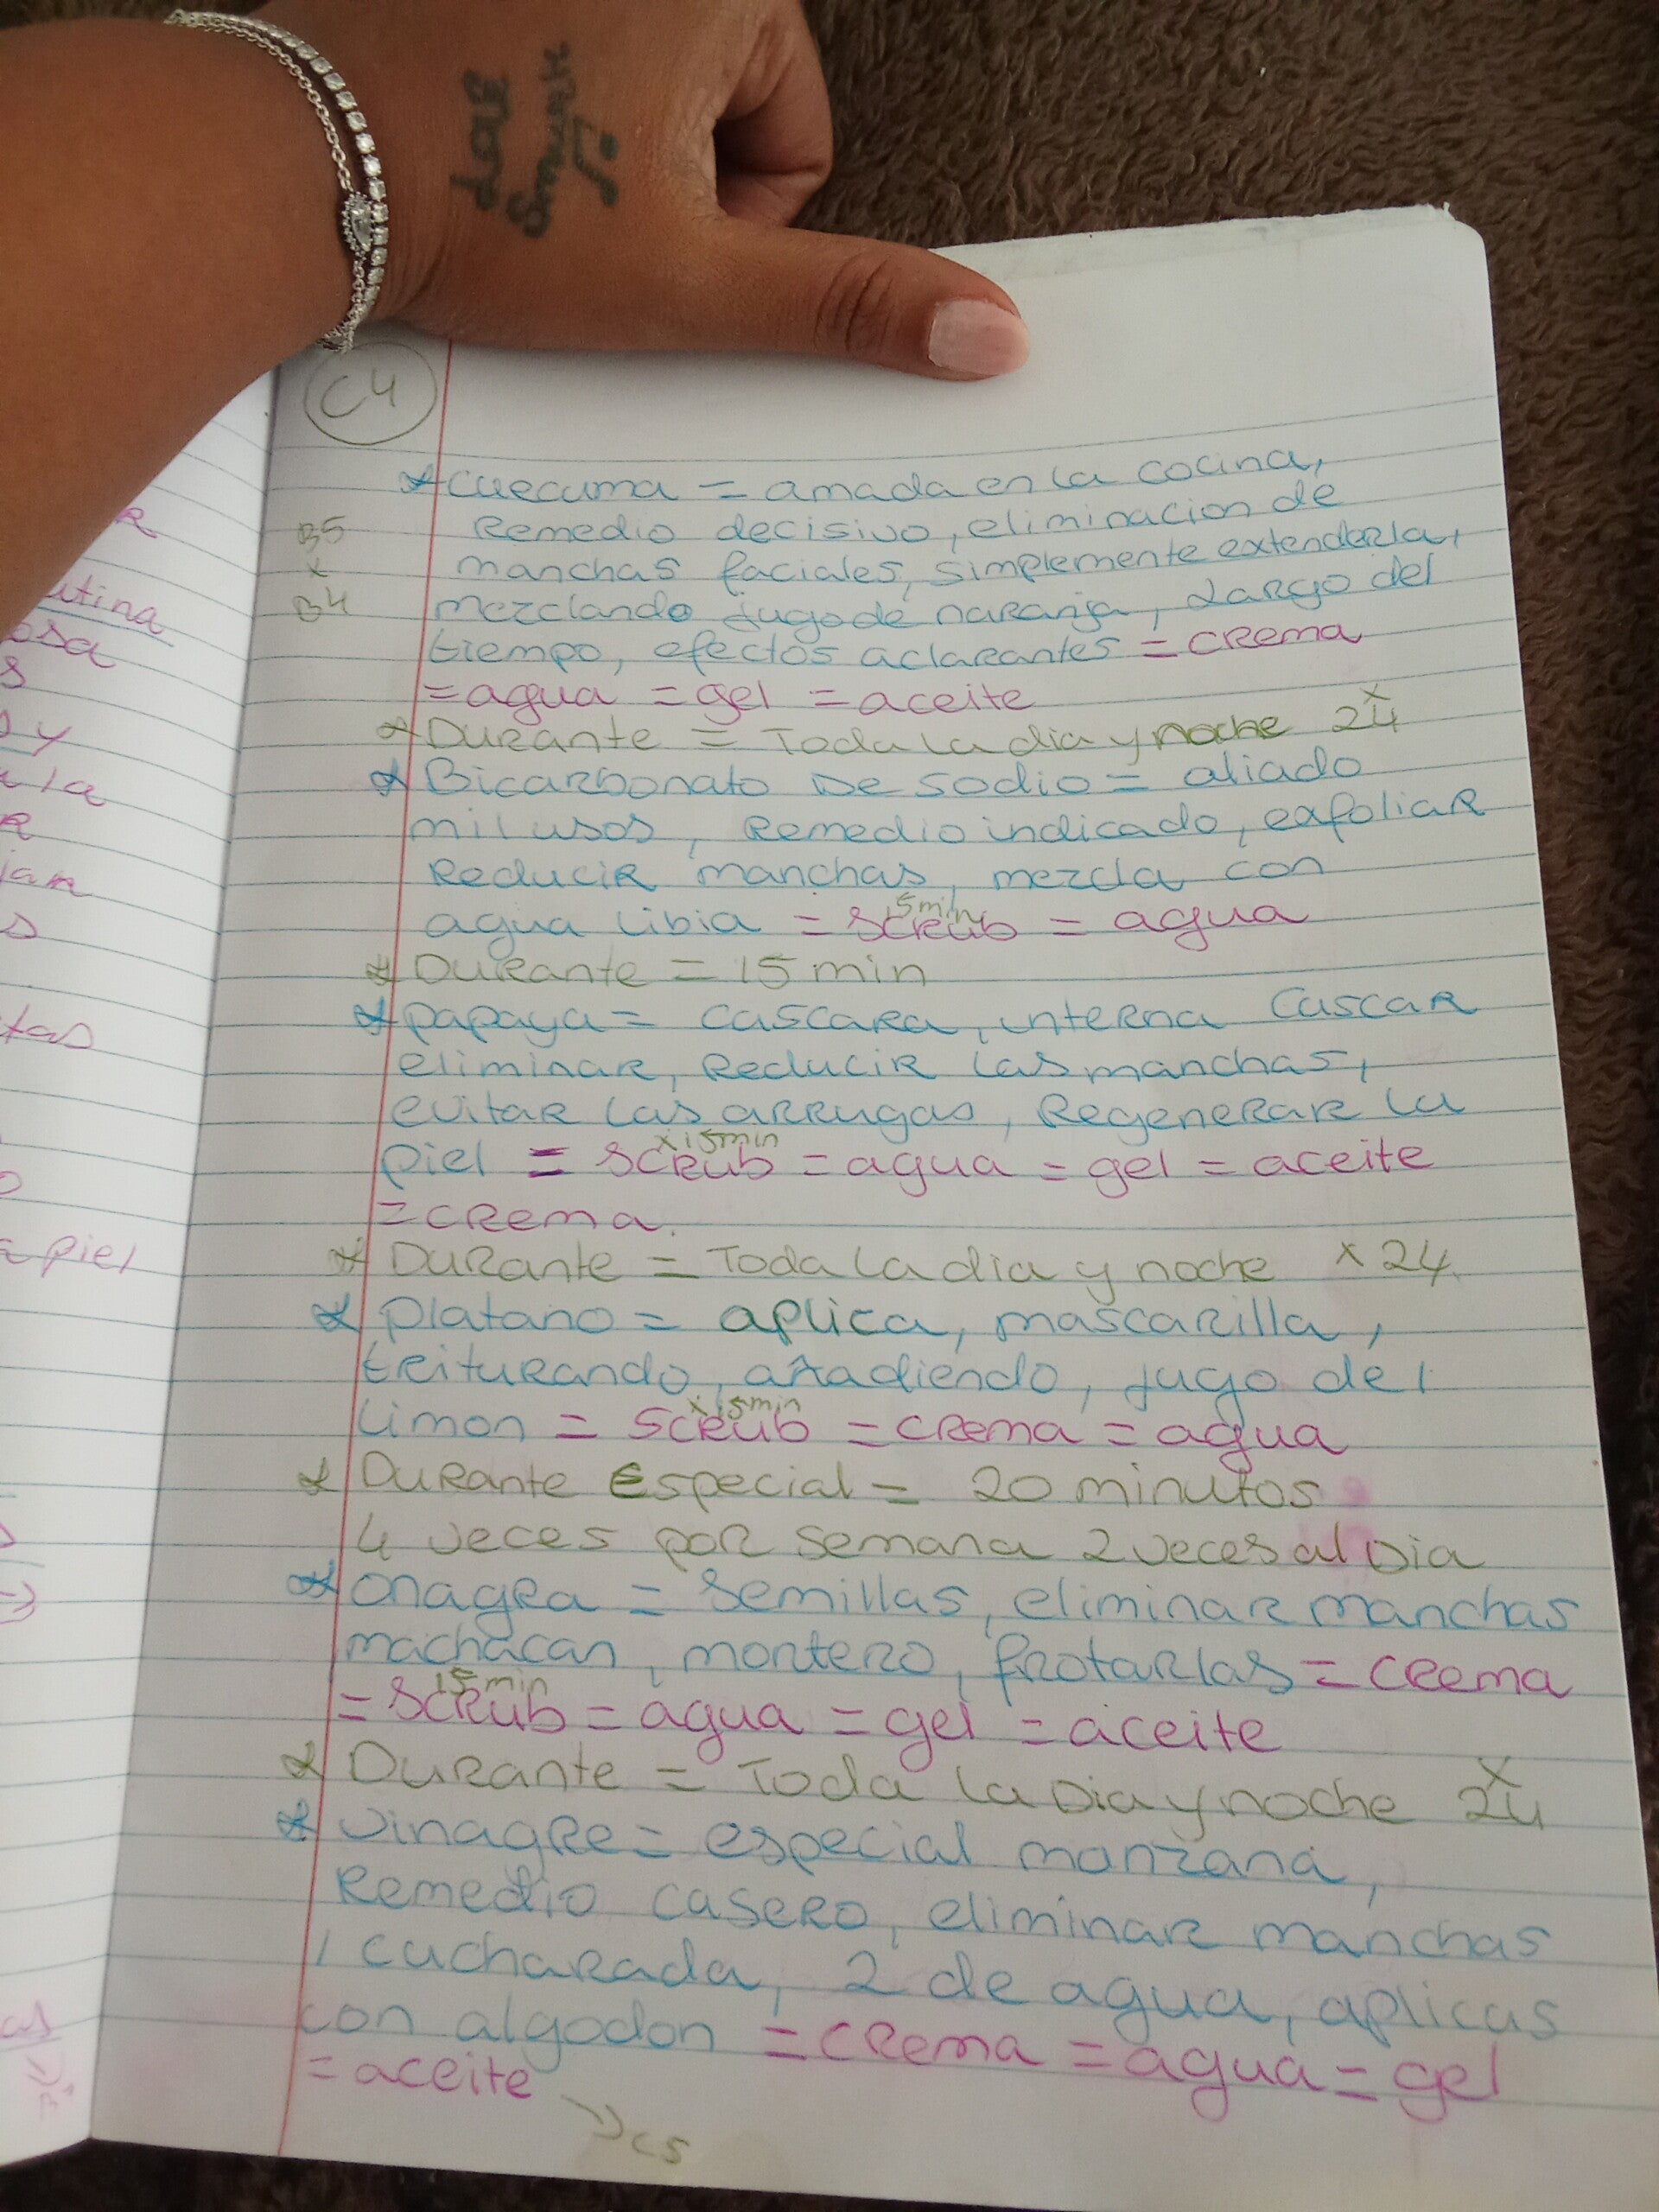 C4
* Curcuma = amada en la cocina,
B5 Remedio decisivo, eliminacion de
x manchas faciales, simplemente extenderla,
B4 mezclando jugo de naranja, Largo del
tiempo, efectos aclarantes = crema
= agua = gel = aceite
* Durante = Toda la dia y noche x 24
* Bicarbonato De sodio = aliado
mil usos, Remedio indicado, exfoliar
Reducir manchas, mezcla con
agua libia = scrub 15min = agua
* Durante = 15 min
* papaya = cascara, interna Cascar
eliminar, Reducir las manchas,
evitar las arrugas, Regenerar la
piel = scrub x15min = agua = gel = aceite
= crema.
* Durante = Toda la dia y noche x 24
* platano = aplica, mascarilla,
triturando, añadiendo, jugo de 1
Limon = scrub x15min = crema = agua
* Durante Especial = 20 minutos
4 veces por semana 2 veces al Dia
* onagra = semillas, eliminar manchas
machacan, mortero, frotarlas = crema
= scrub 15 min = agua = gel = aceite
* Durante = Toda la Dia y noche x 24
* vinagre = especial manzana,
Remedio casero, eliminar manchas
1 cucharada, 2 de agua, aplicas
con algodon = crema = agua = gel
= aceite
→ C5
R
utina
osa
s
y
a la
R
jar
s
tas
o
a piel
as